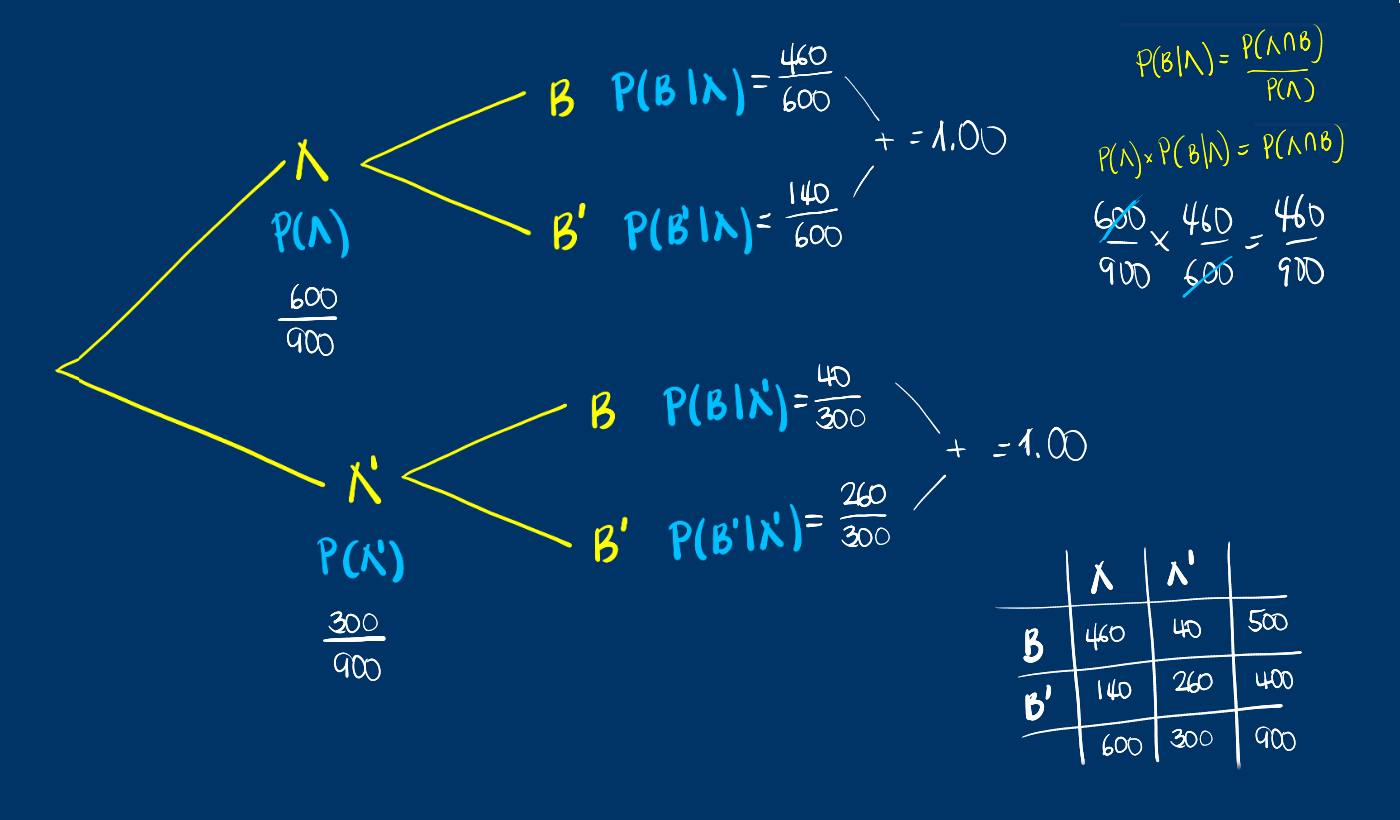 Λ
P(Λ)
600/900
B P(B|Λ) = 460/600
B' P(B'|Λ) = 140/600
+ = 1.00
Λ'
P(Λ')
300/900
B P(B|Λ') = 40/300
B' P(B'|Λ') = 260/300
+ = 1.00
P(B|Λ) = P(Λ∩B)/P(Λ)
P(Λ) × P(B|Λ) = P(Λ∩B)
600/900 × 460/600 = 460/900
Λ Λ'
B 460 40 500
B' 140 260 400
600 300 900